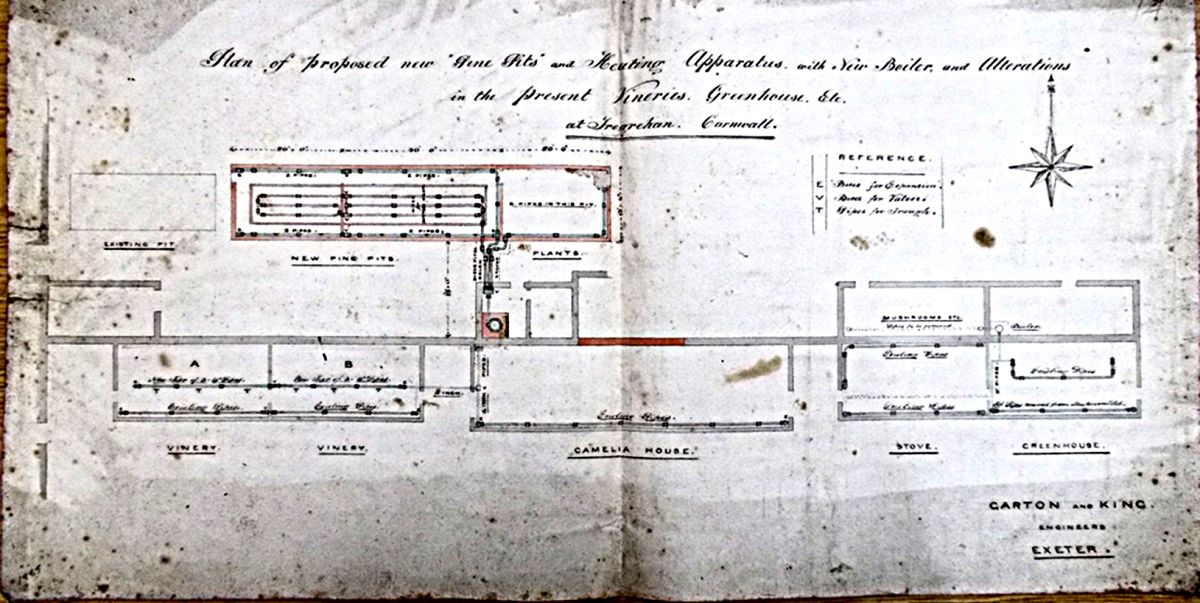 Plan of proposed new "Pine Pits" and Heating Apparatus. with New Boiler, and Alterations
in the present Vineries. Greenhouse. Etc.
at Tregrehan. Cornwall.
REFERENCE.
E Pipes for Expansion.
V Pipes for Valves.
T Pipes for Trough.
2 PIPES.
2 PIPES.
2 PIPES IN THIS PIT.
2 PIPES.
2 PIPES.
EXISTING PIT
NEW PINE PITS.
PLANTS.
MUSHROOMS ETC.
Boiler
A
B
Existing Pipes
Existing Pipes
Existing Pipes.
Existing Pipes
Existing Pipes
Existing Pipes
VINERY.
VINERY.
CAMELIA HOUSE.
STOVE.
GREENHOUSE.
GARTON AND KING.
ENGINEERS
EXETER.